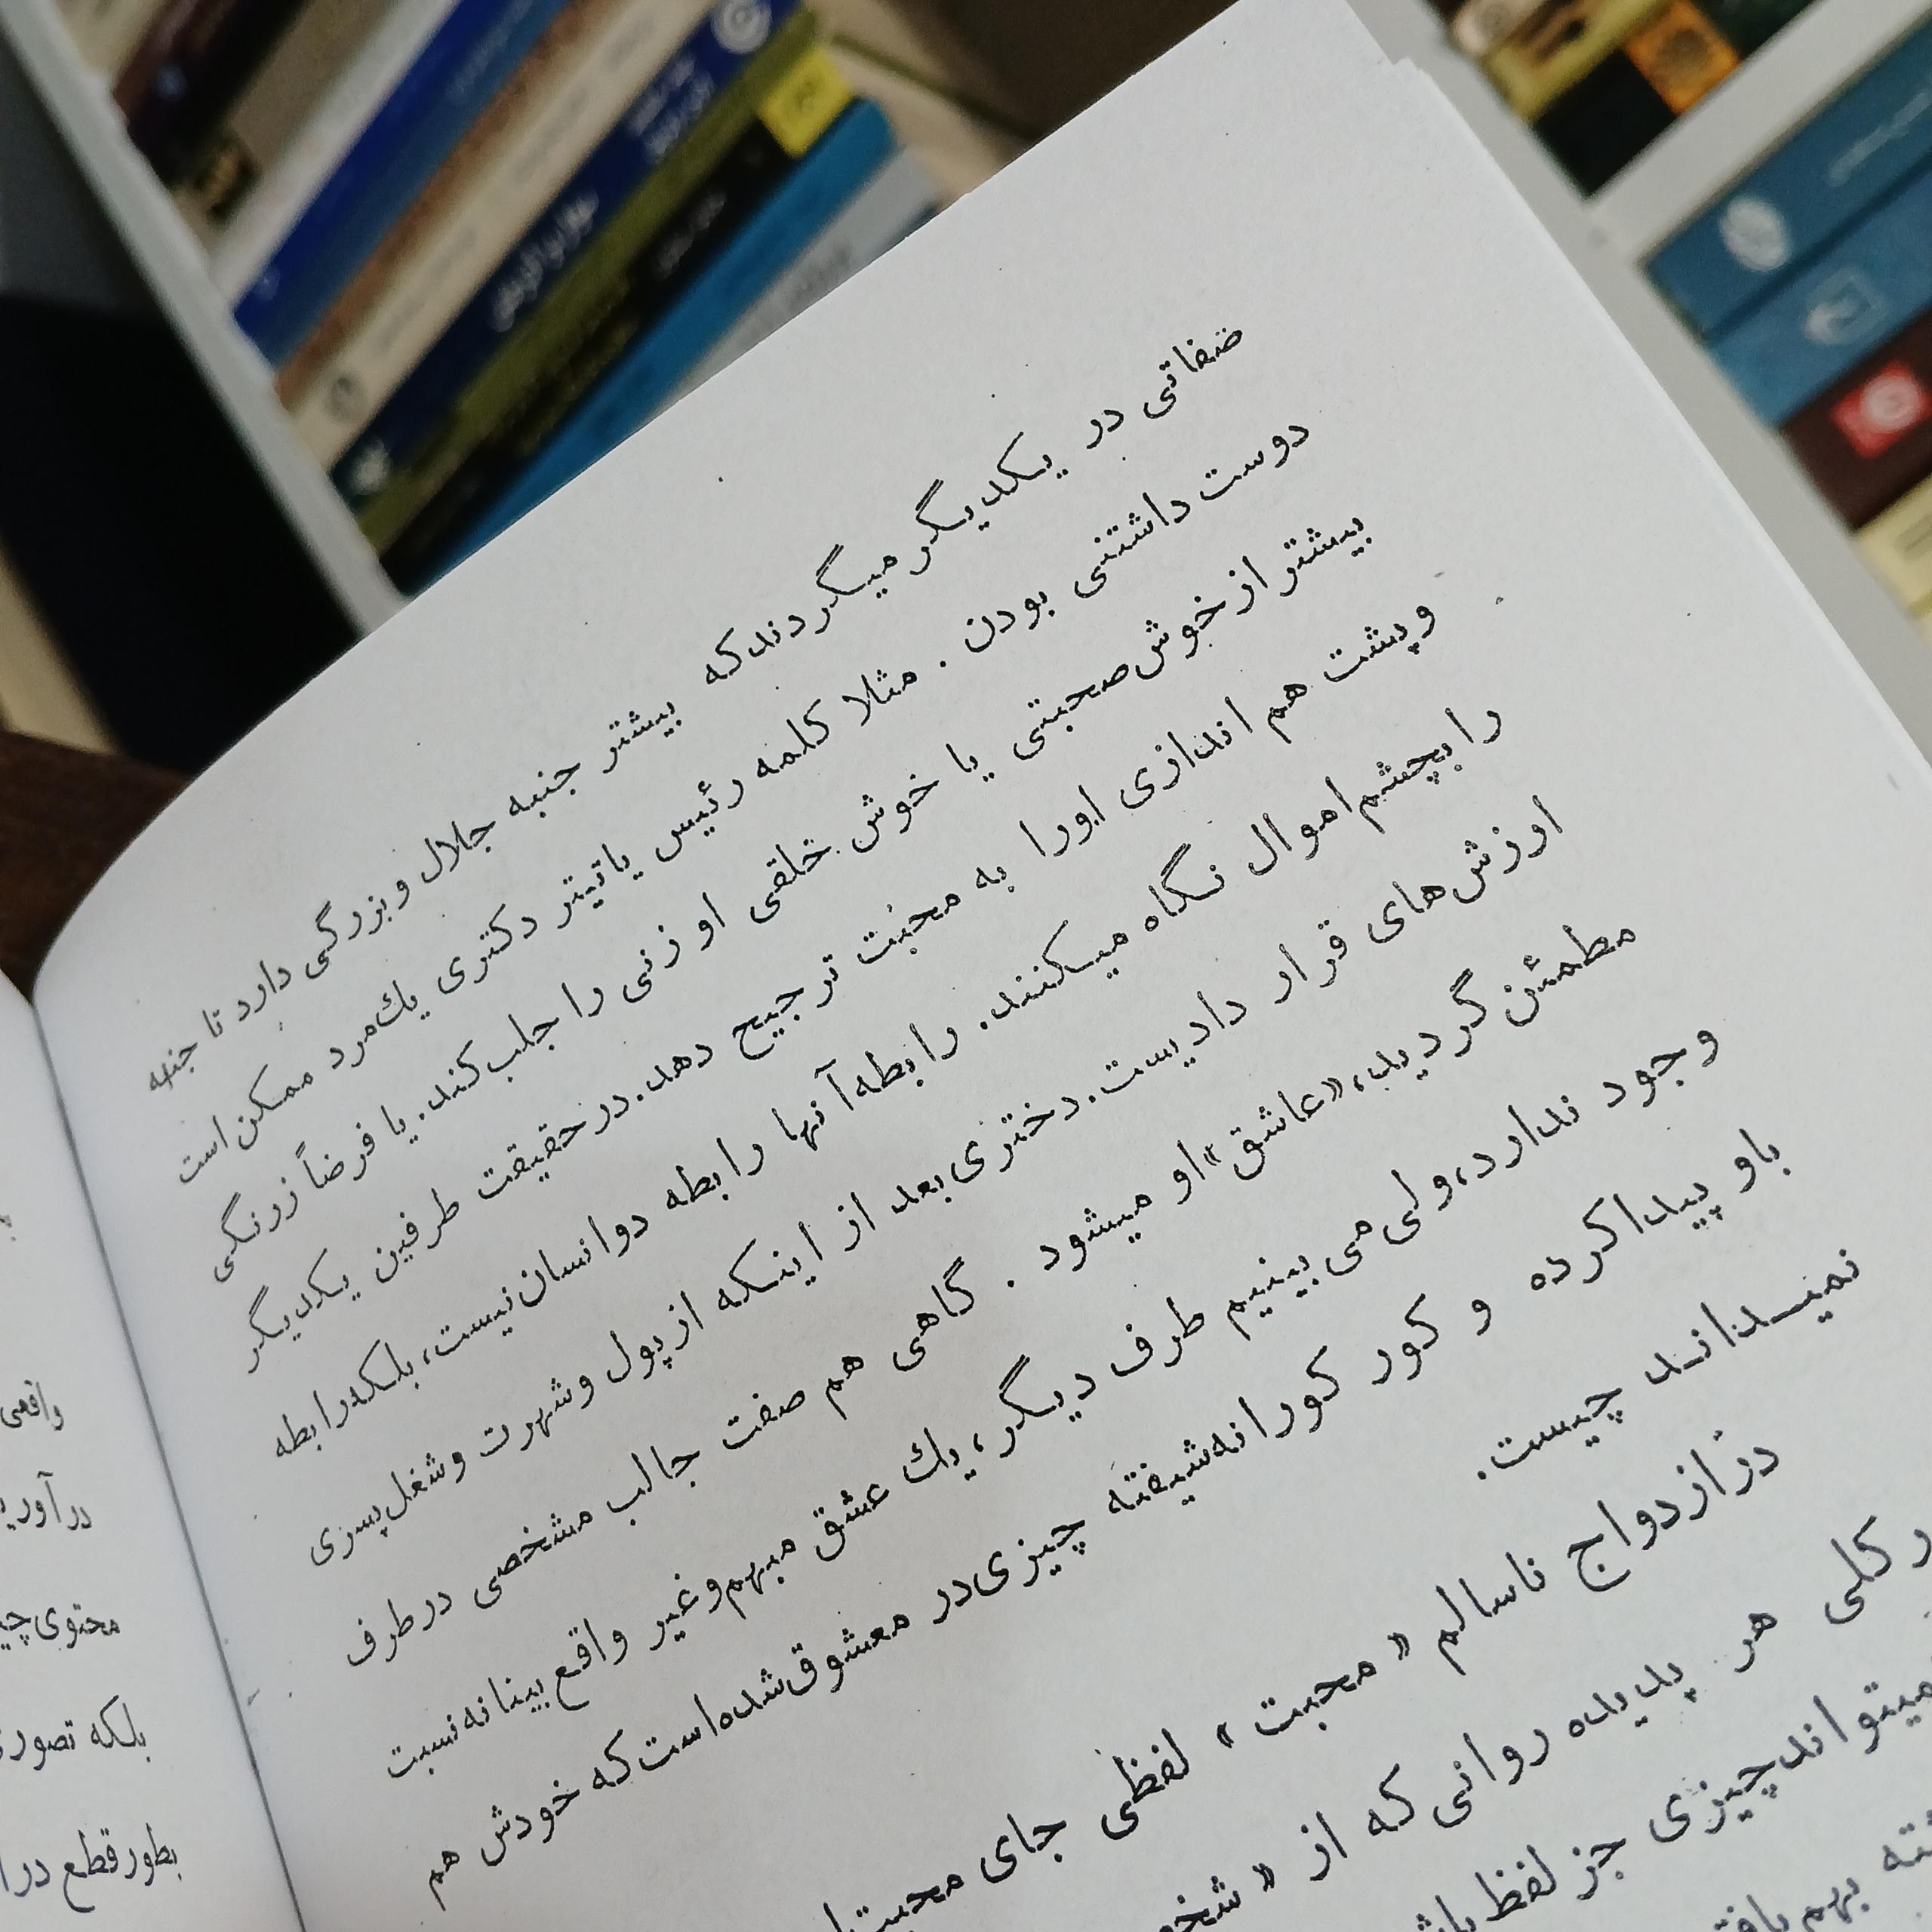 صفاتی در یکدیگر میگردند که بیشتر جنبه جلال و بزرگی دارد تا جنبه
دوست داشتنی بودن . مثلا کلمه رئیس یا تیتر دکتری یك مرد ممکن است
بیشتر از خوش صحبتی یا خوش خلقی او زنی را جلب کند. یا فرضاً زرنگی
و پشت هم اندازی او را به محبت ترجیح دهد. در حقیقت طرفین یکدیگر
را بچشم اموال نگاه میکنند. رابطه آنها رابطه دو انسان نیست، بلکه رابطه
ارزش‌های قرار دادیست. دختری بعد از اینکه از پول و شهرت و شغل پسری
مطمئن گردید، «عاشق» او میشود . گاهی هم صفت جالب مشخصی در طرف
وجود ندارد، ولی می بینیم طرف دیگر، یك عشق مبهم و غیر واقع بینانه نسبت
باو پیدا کرده و کور کورانه شیفته چیزی در معشوق شده است که خودش هم
نمیداند چیست.
در ازدواج ناسالم « محبت » لفظی جای محبت
کلی هر پدیده روانی که از «
میتواند چیزی جز لفظ
بهم
واقعی
محتوی
بلکه تصور
بطور قطع در